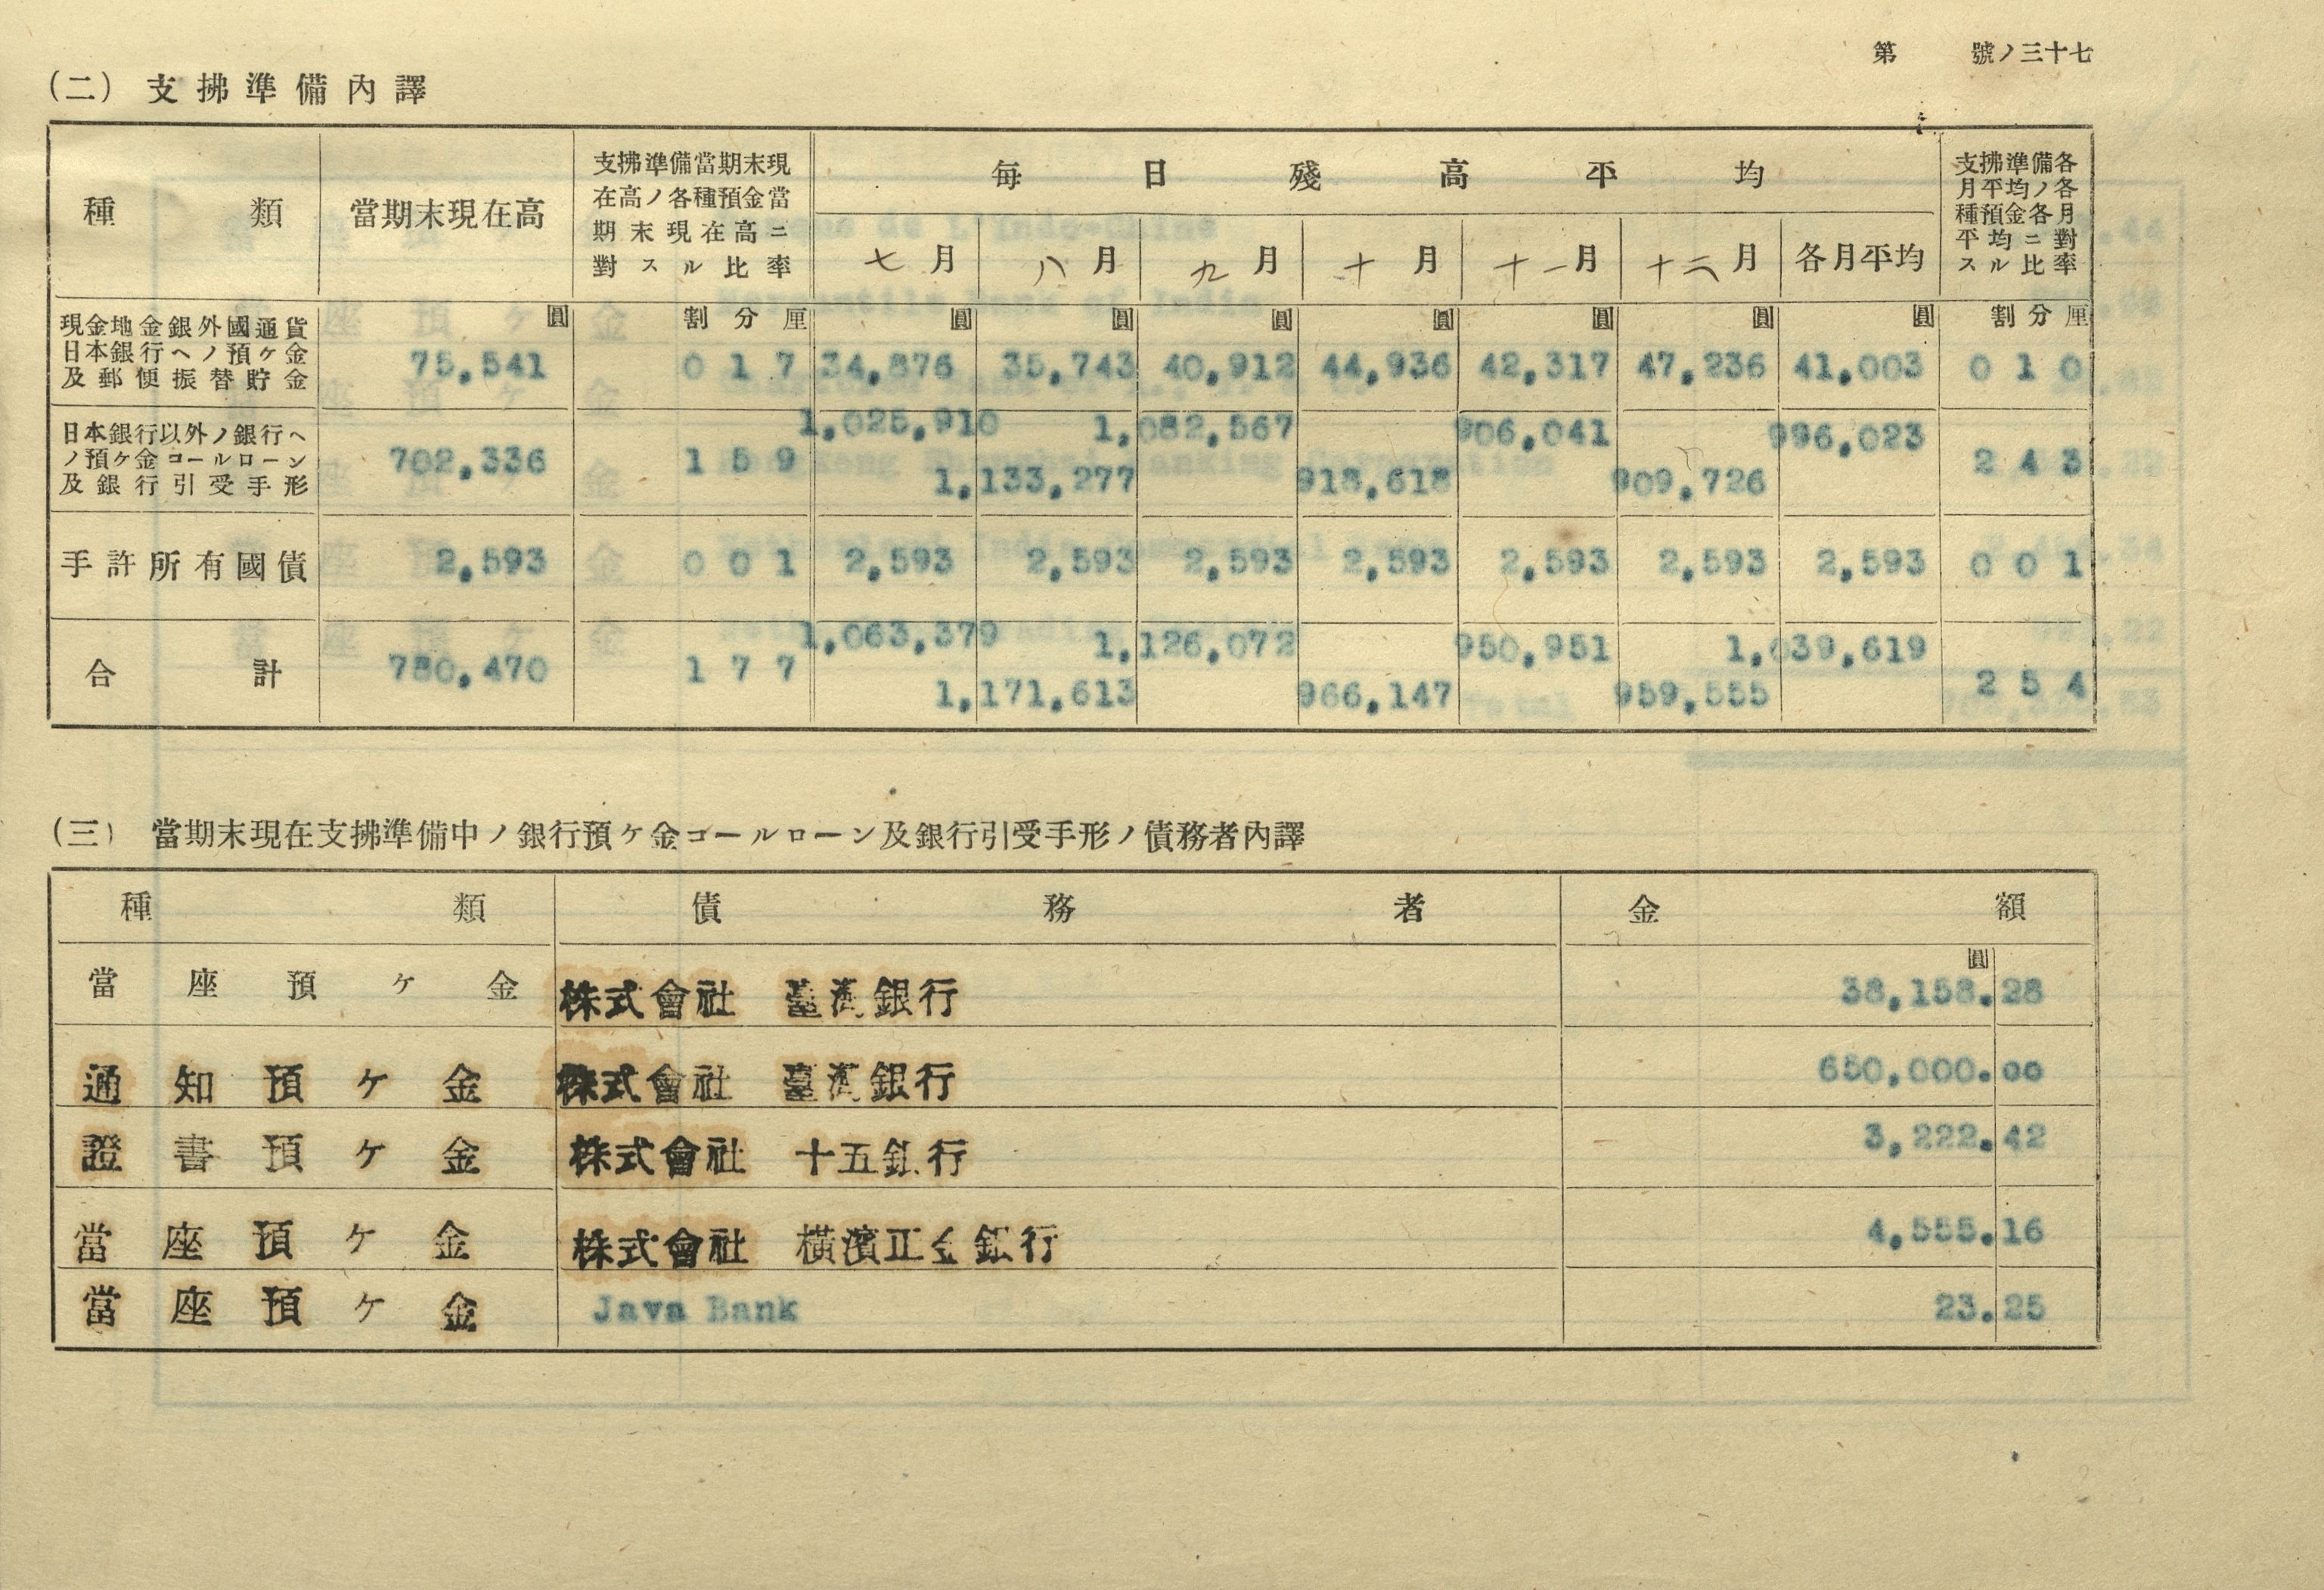 第 號ノ三十七
(二) 支拂準備內譯
種類 當期末現在高 支拂準備當期末現在高ノ各種預金當期末現在高ニ對スル比率 每日殘高平均 支拂準備各月平均ノ各種預金各月平均ニ對スル比率
七月 八月 九月 十月 十一月 十二月 各月平均
圓 割分厘 圓 圓 圓 圓 圓 圓 圓 割分厘
現金地金銀外國通貨
日本銀行ヘノ預ケ金
及郵便振替貯金
75,541 0 1 7 34,876 35,743 40,912 44,936 42,317 47,236 41,003 0 1 0
日本銀行以外ノ銀行ヘ
ノ預ケ金コールローン
及銀行引受手形
702,336 1 5 9 1,025,910 1,133,277 1,082,567 918,618 906,041 909,726 996,023 2 4 3
手許所有國債 2,593 0 0 1 2,593 2,593 2,593 2,593 2,593 2,593 2,593 0 0 1
合計 780,470 1 7 7 1,063,379 1,171,613 1,126,072 966,147 950,951 959,555 1,039,619 2 5 4
(三) 當期末現在支拂準備中ノ銀行預ケ金コールローン及銀行引受手形ノ債務者內譯
種類 債務者 金額
圓
當座預ケ金 株式會社 臺灣銀行 38,158.28
通知預ケ金 株式會社 臺灣銀行 650,000.00
證書預ケ金 株式會社 十五銀行 3,222.42
當座預ケ金 株式會社 橫濱正金銀行 4,555.16
當座預ケ金 Java Bank 23.25